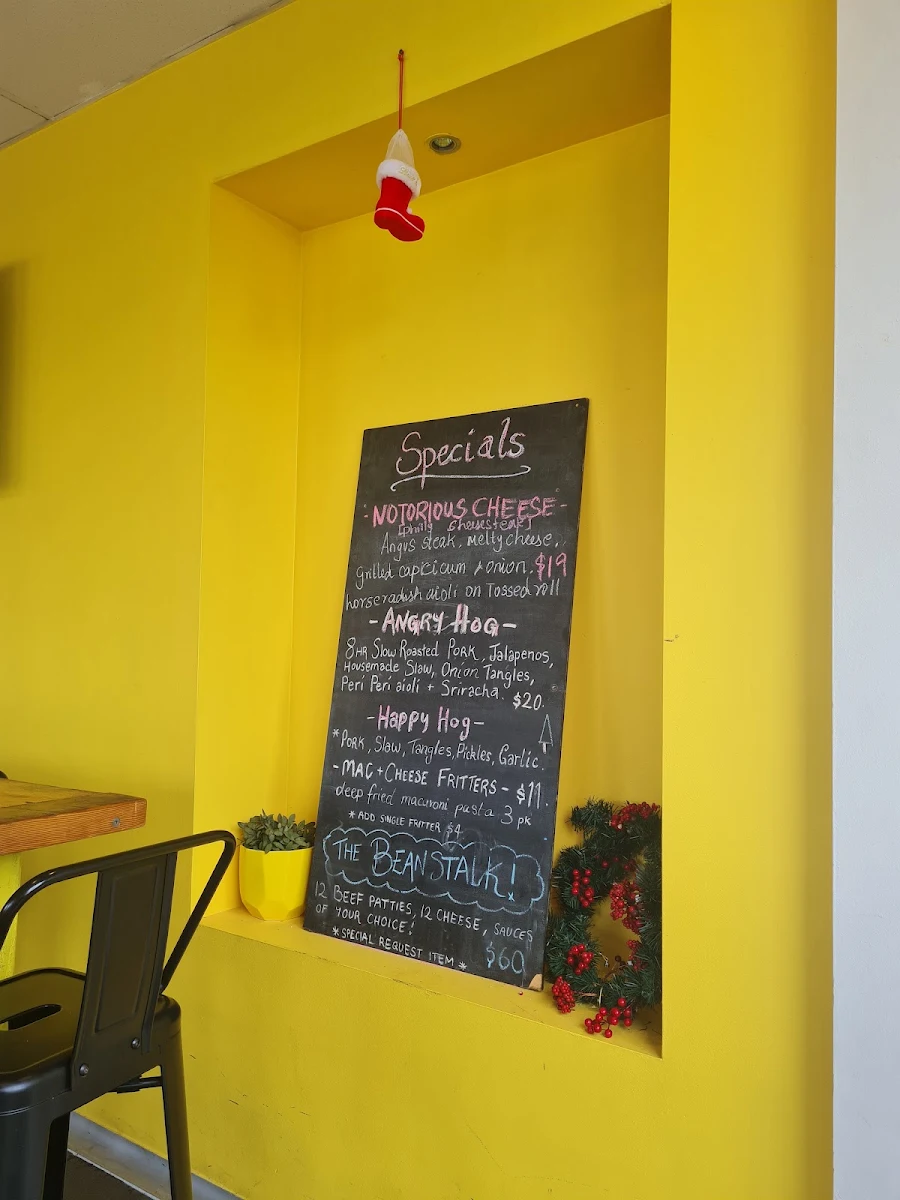 Specials
-NOTORIOUS CHEESE-
[philly cheesesteak]
Angus steak, melty cheese,
Grilled capcicum + onion. $19
horseradish aioli on Tossed roll
-ANGRY HOG-
8HR Slow Roasted PORK, Jalapenos,
Housemade Slaw, Onion Tangles,
Peri Peri aioli + Sriracha. $20.
-Happy Hog-
*PORK, Slaw, Tangles, Pickles, Garlic.
-MAC+CHEESE FRITTERS - $11.
deep fried macaroni pasta 3 pk
*ADD SINGLE FRITTER $4
THE BEANSTALK!
12 BEEF PATTIES, 12 CHEESE, SAUCES
OF YOUR CHOICE!
*SPECIAL REQUEST ITEM* $60